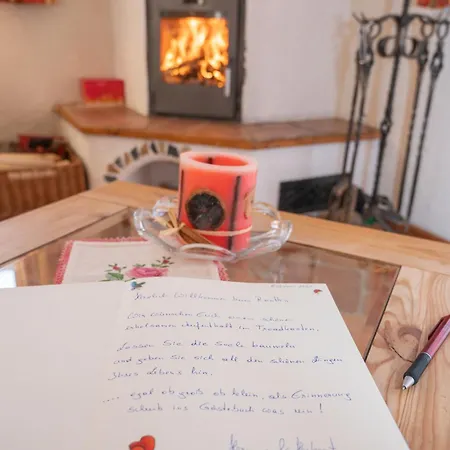 Herzlich Willkommen
Wir wünschen Euch einen schönen
erholsamen Aufenthalt im
Lassen Sie die Seele baumeln
und geben Sie sich all den schönen Dingen
Ihres Lebens hin.
.... egal ob groß ob klein, als Erinnerung
schreib ins Gästebuch was rein!